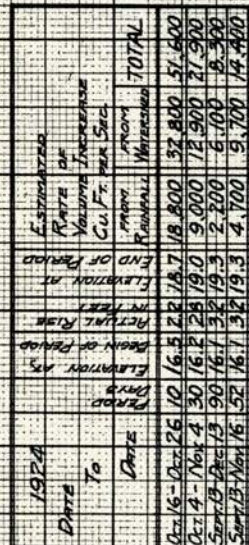 1924
DATE
TO
DATE
PERIOD
DAYS
ELEVATION AT
BEGIN OF PERIOD
ACTUAL RISE
IN FEET
ELEVATION AT
END OF PERIOD
ESTIMATED
RATE OF
VOLUME INCREASE
CU. FT. PER SEC.
FROM
RAINFALL
FROM
WATERSHED
TOTAL
OCT. 16 - OCT. 26 10 16.5 2.2 18.7 18,800 32,800 51,600
OCT. 4 - NOV. 4 30 16.2 2.8 19.0 9,000 12,900 21,900
SEPT. 13 - DEC. 13 90 16.1 3.2 19.3 2,200 6,100 8,300
SEPT. 13 - NOV. 16 52 16.1 3.2 19.3 4,700 9,700 14,400